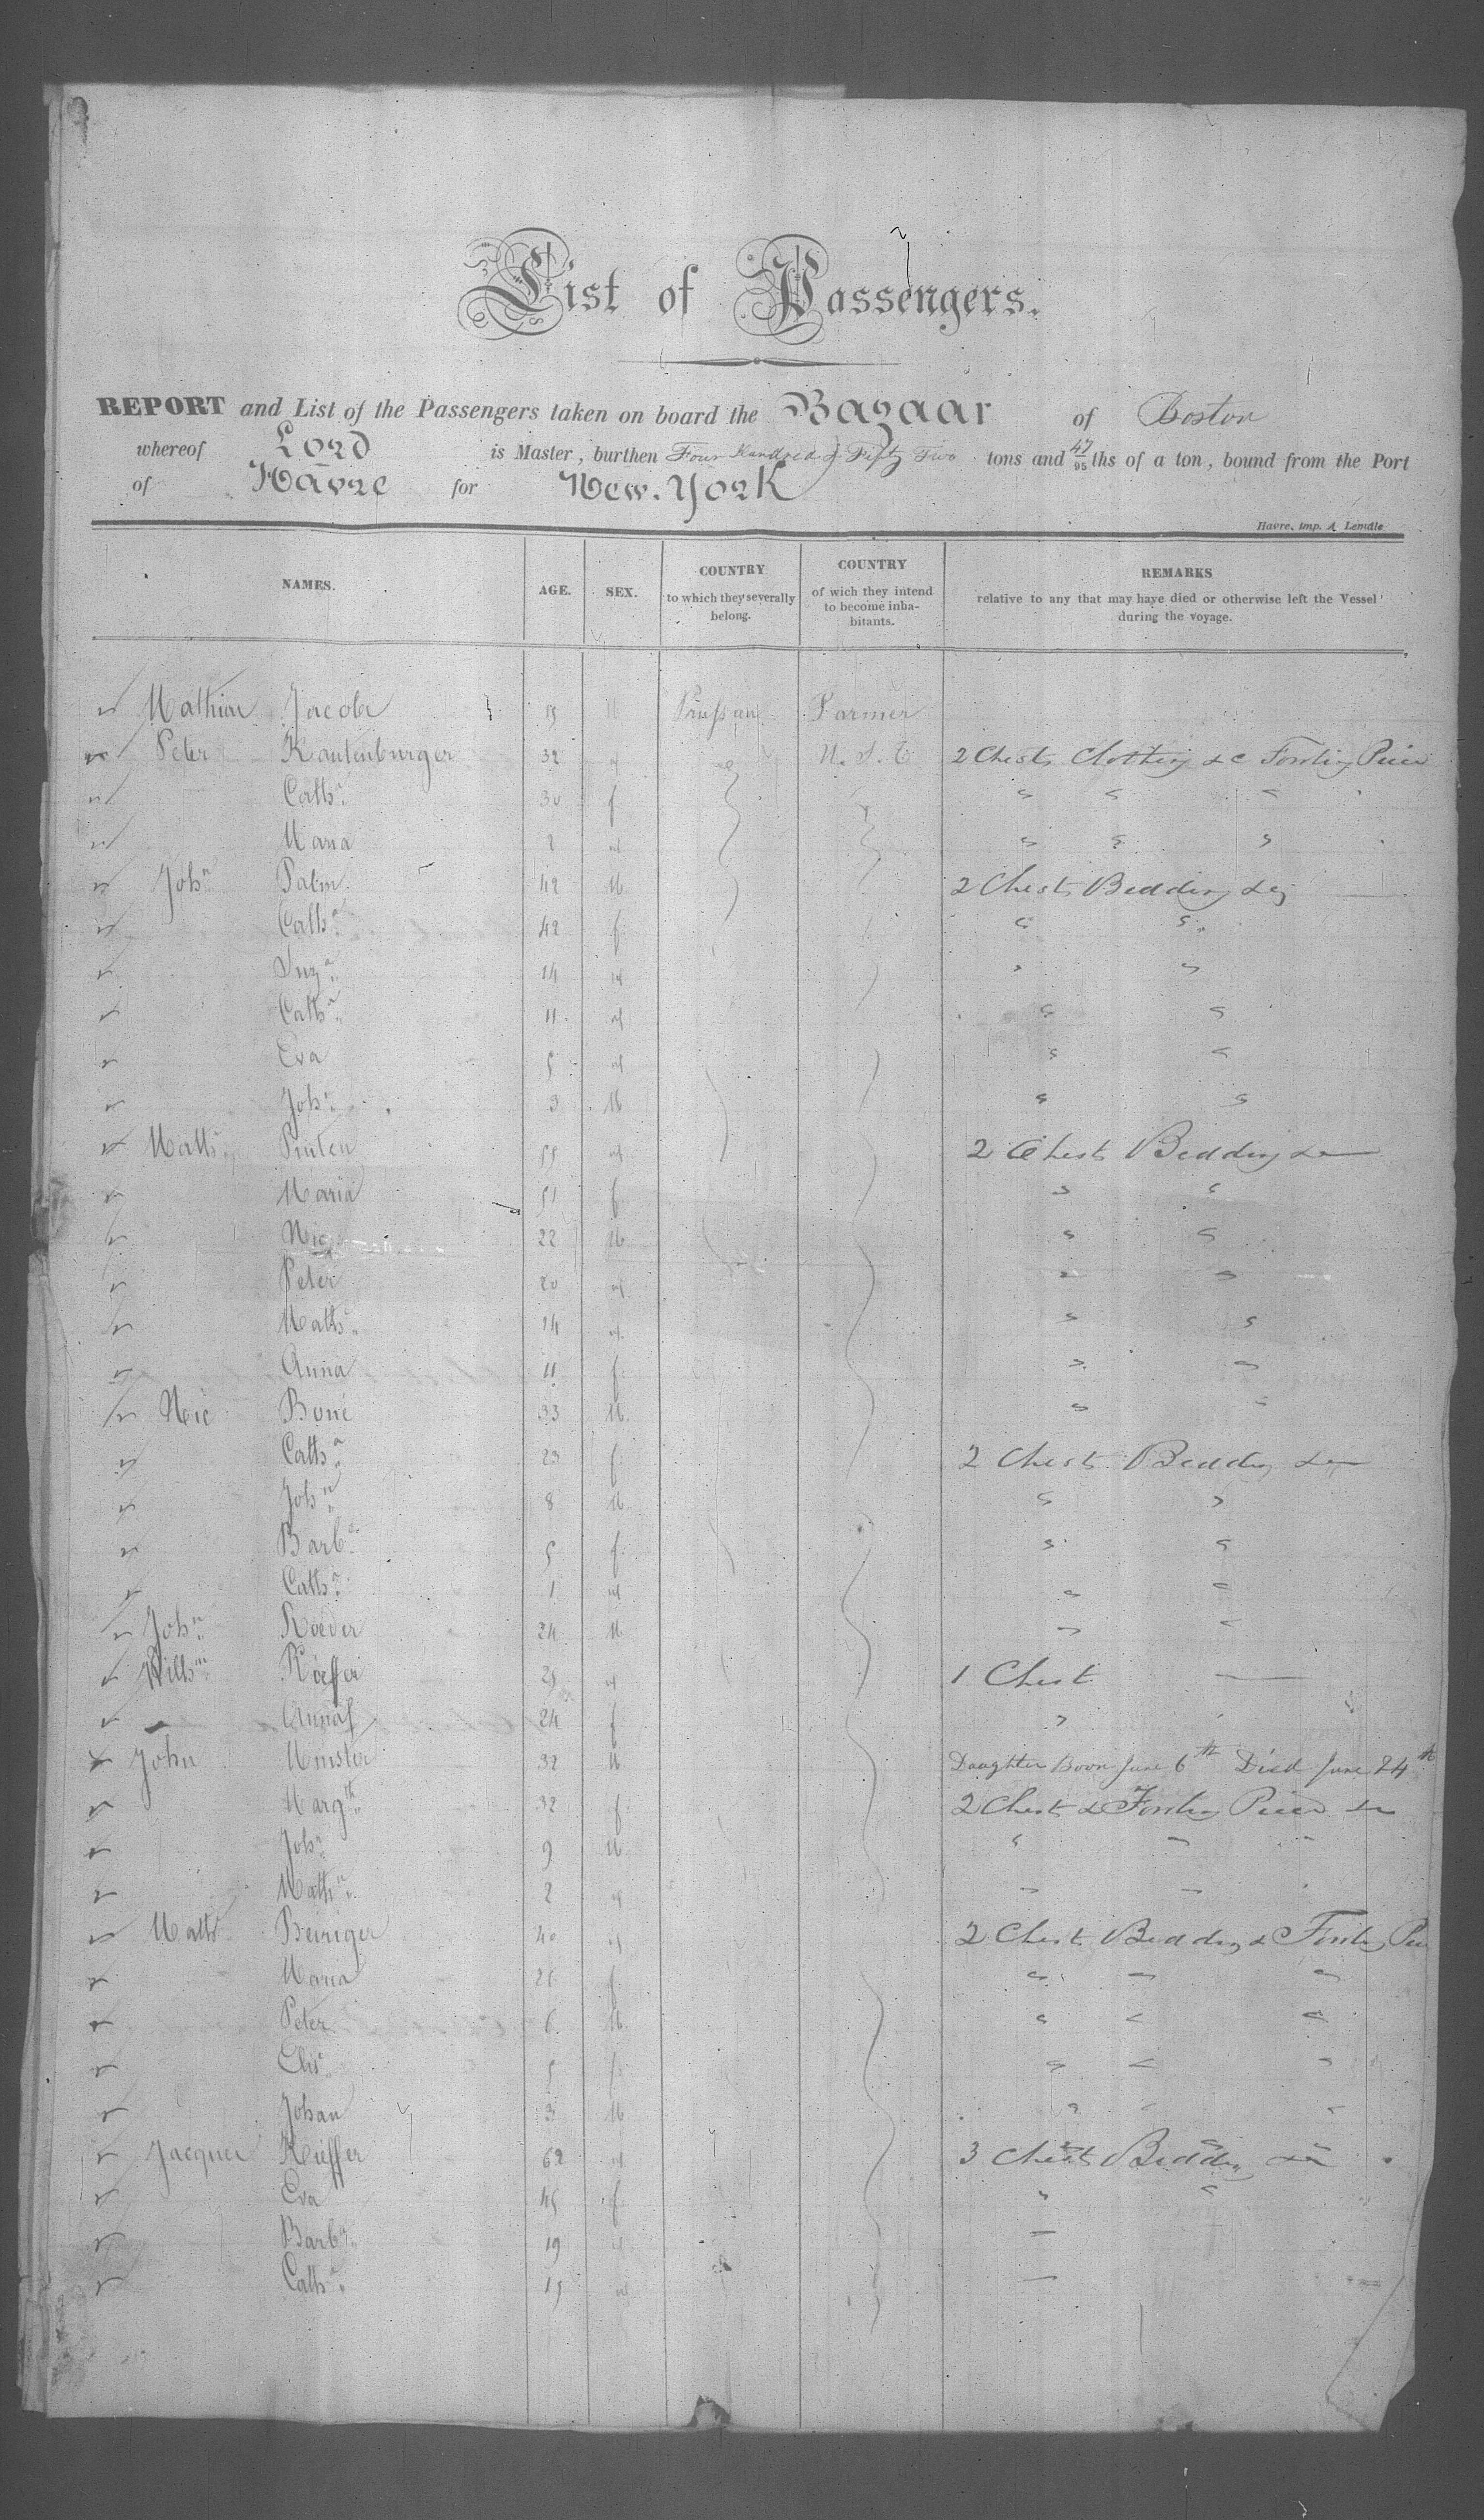 List of Passengers.
REPORT and List of the Passengers taken on board the Bazaar of Boston
whereof Lord is Master, burthen Four Hundred & Fifty Two tons and 47/95 ths of a ton, bound from the Port
of Havre for New-York
Havre, imp. A Lemâle
NAMES. AGE. SEX. COUNTRY to which they severally belong. COUNTRY of wich they intend to become inhabitants. REMARKS relative to any that may have died or otherwise left the Vessel during the voyage.
Mathias Jacobs M Prussian Farmer
Peter Kautenburger 32 U. S. 2 Chests Clothing &c Fowling Piece
Cath.a 30 f " " "
Maria 2 " " "
Joh.n Palm 42 M 2 Chests Bedding &c
Cath.a 42 f " "
Suz.a 14 " "
Cath.a 11 " "
Eva 5 " "
Joh.n 3 M " "
Math.s 55 2 Chests Bedding &c
Maria 51 f " "
Nic 22 M " "
Peter 20 " "
Math.s 14 " "
Anna 11 f " "
Nic 33 M " "
Cath.a 23 f 2 Chests Bedding &c
Joh.n 8 M " "
Barb.a 5 f " "
Cath.a 1 " "
Joh.n Roeder 24 M " "
Wilh.m 29 1 Chest
Anna 24 f "
John Minster 32 M Daughter Born June 6th Died June 24th
Marg.th 32 f 2 Chests & Fowling Piece &c
Joh.n 9 M " " "
Math.s 2 " " "
Maths Beiriger 40 2 Chests Bedding & Fowling Pie
Maria 26 f " " "
Peter 6 M " " "
Elis.a 5 f " " "
Johan 3 M " " "
Jacques Kieffer 62 3 Chests Bedding &c
Eva 45 f " "
Barb.a 19 —
Cath.a —